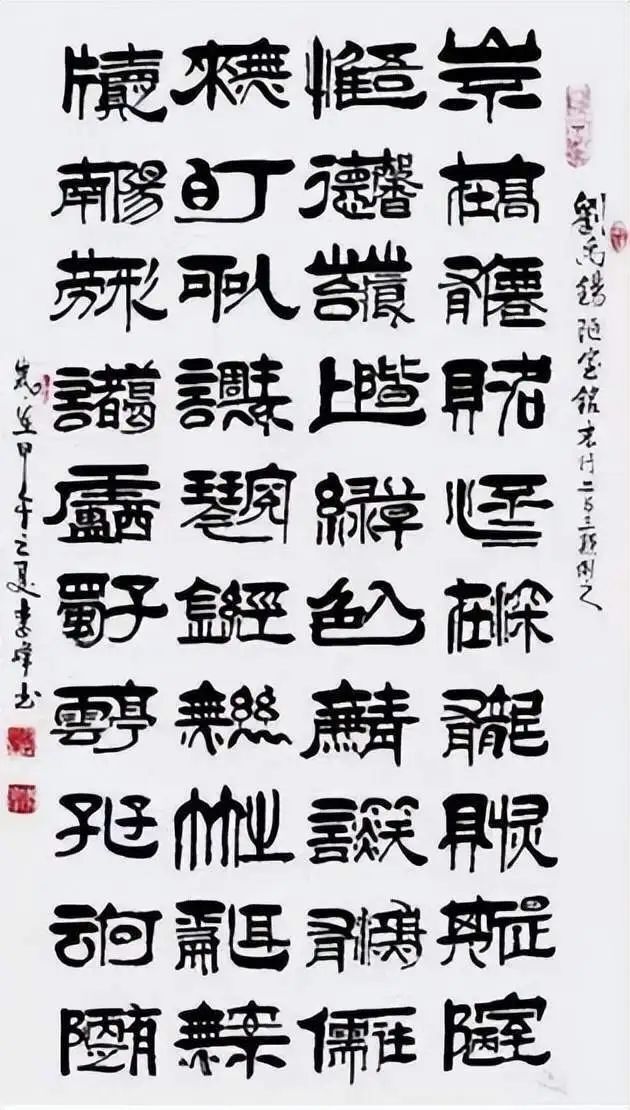 劉禹錫陋室銘
山不在高有僊則名水不在深有龍則靈斯是陋室
惟吾德馨苔痕上階綠草色入簾青談笑有鴻儒往
來無白丁可以調素琴閱金經無絲竹之亂耳無案
牘南陽勞形諸葛廬西蜀子雲亭孔子云何陋有
歲在甲午之夏李峰书